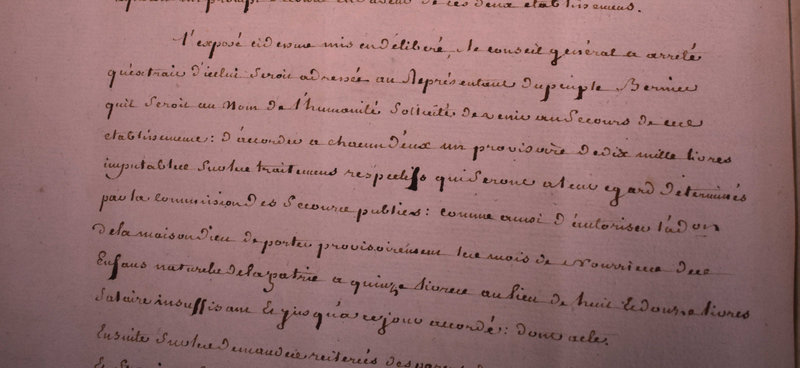 de ces deux etablissemens.
l'exposé cidessus mis en déliberé, le conseil général a arrêté
qu'extrait d'icelui seroit adressée au Représentant du peuple Bernier
quil seroit au Nom de l'humanité sollicité de venir au Secours de ces
etablissemens: d'accorder a chacun d'eux un provisoire de dix mille livres
imputables sur les traitemens respectifs qui seront a leur egard determinés
par la Commission des Secours publics: comme aussi d'autoriser l'adon
de la maison dieu de porter provisoirement les mois de Nourrices des
Enfans naturels de la patrie a quinze livres au lieu de huit et douze livres
Salaire insuffisant et jusqu'a ce jour accordé: dont acte.
Ensuite sur les demandes reiterées des